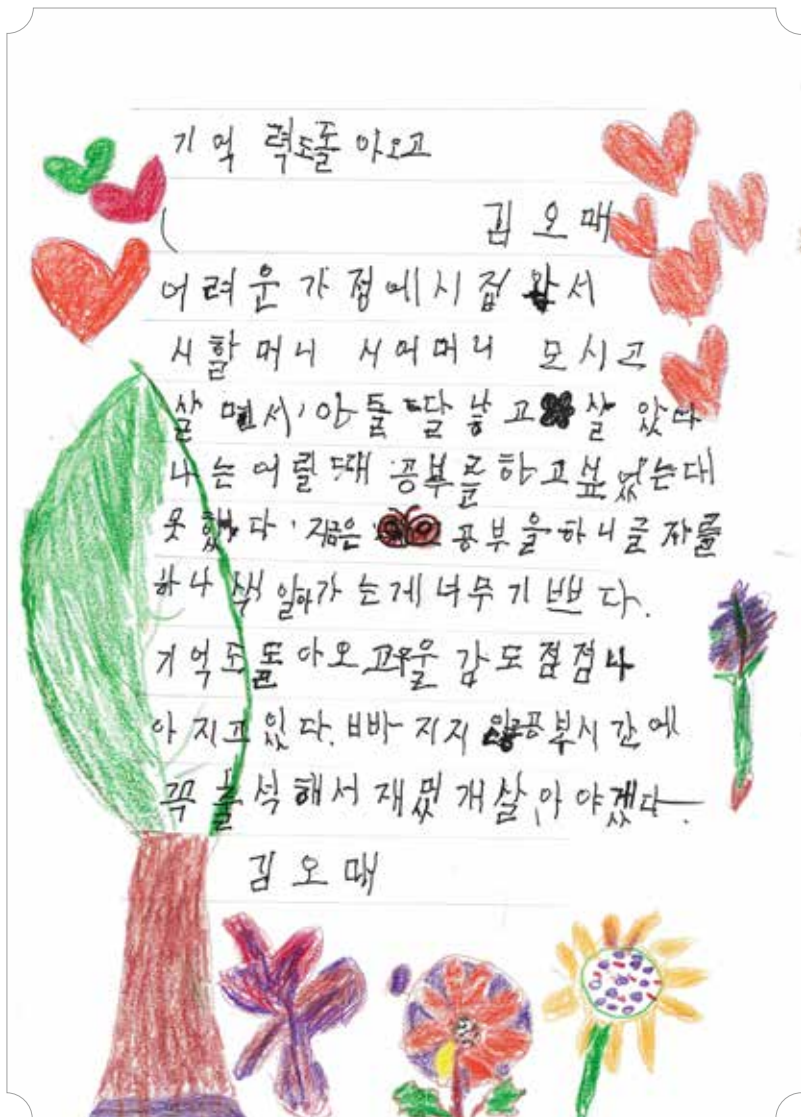 기억 력도돌 아오고
김오매
어려운 가정에 시집 와서
시할머니 시어머니 모시고
살면서 아들 딸 낳고 살았다
나는 어릴때 공부를 하고싶었는대
못했다 지금은 공부을 하니글 자를
하나 식 일하가 는게 너무 기쁘다.
기억도 돌 아오고우울 감도 점점나
아지고있다. 빠지지 않공부시간에
꼭 출석 해서 재밌개살아야겠다
김오매